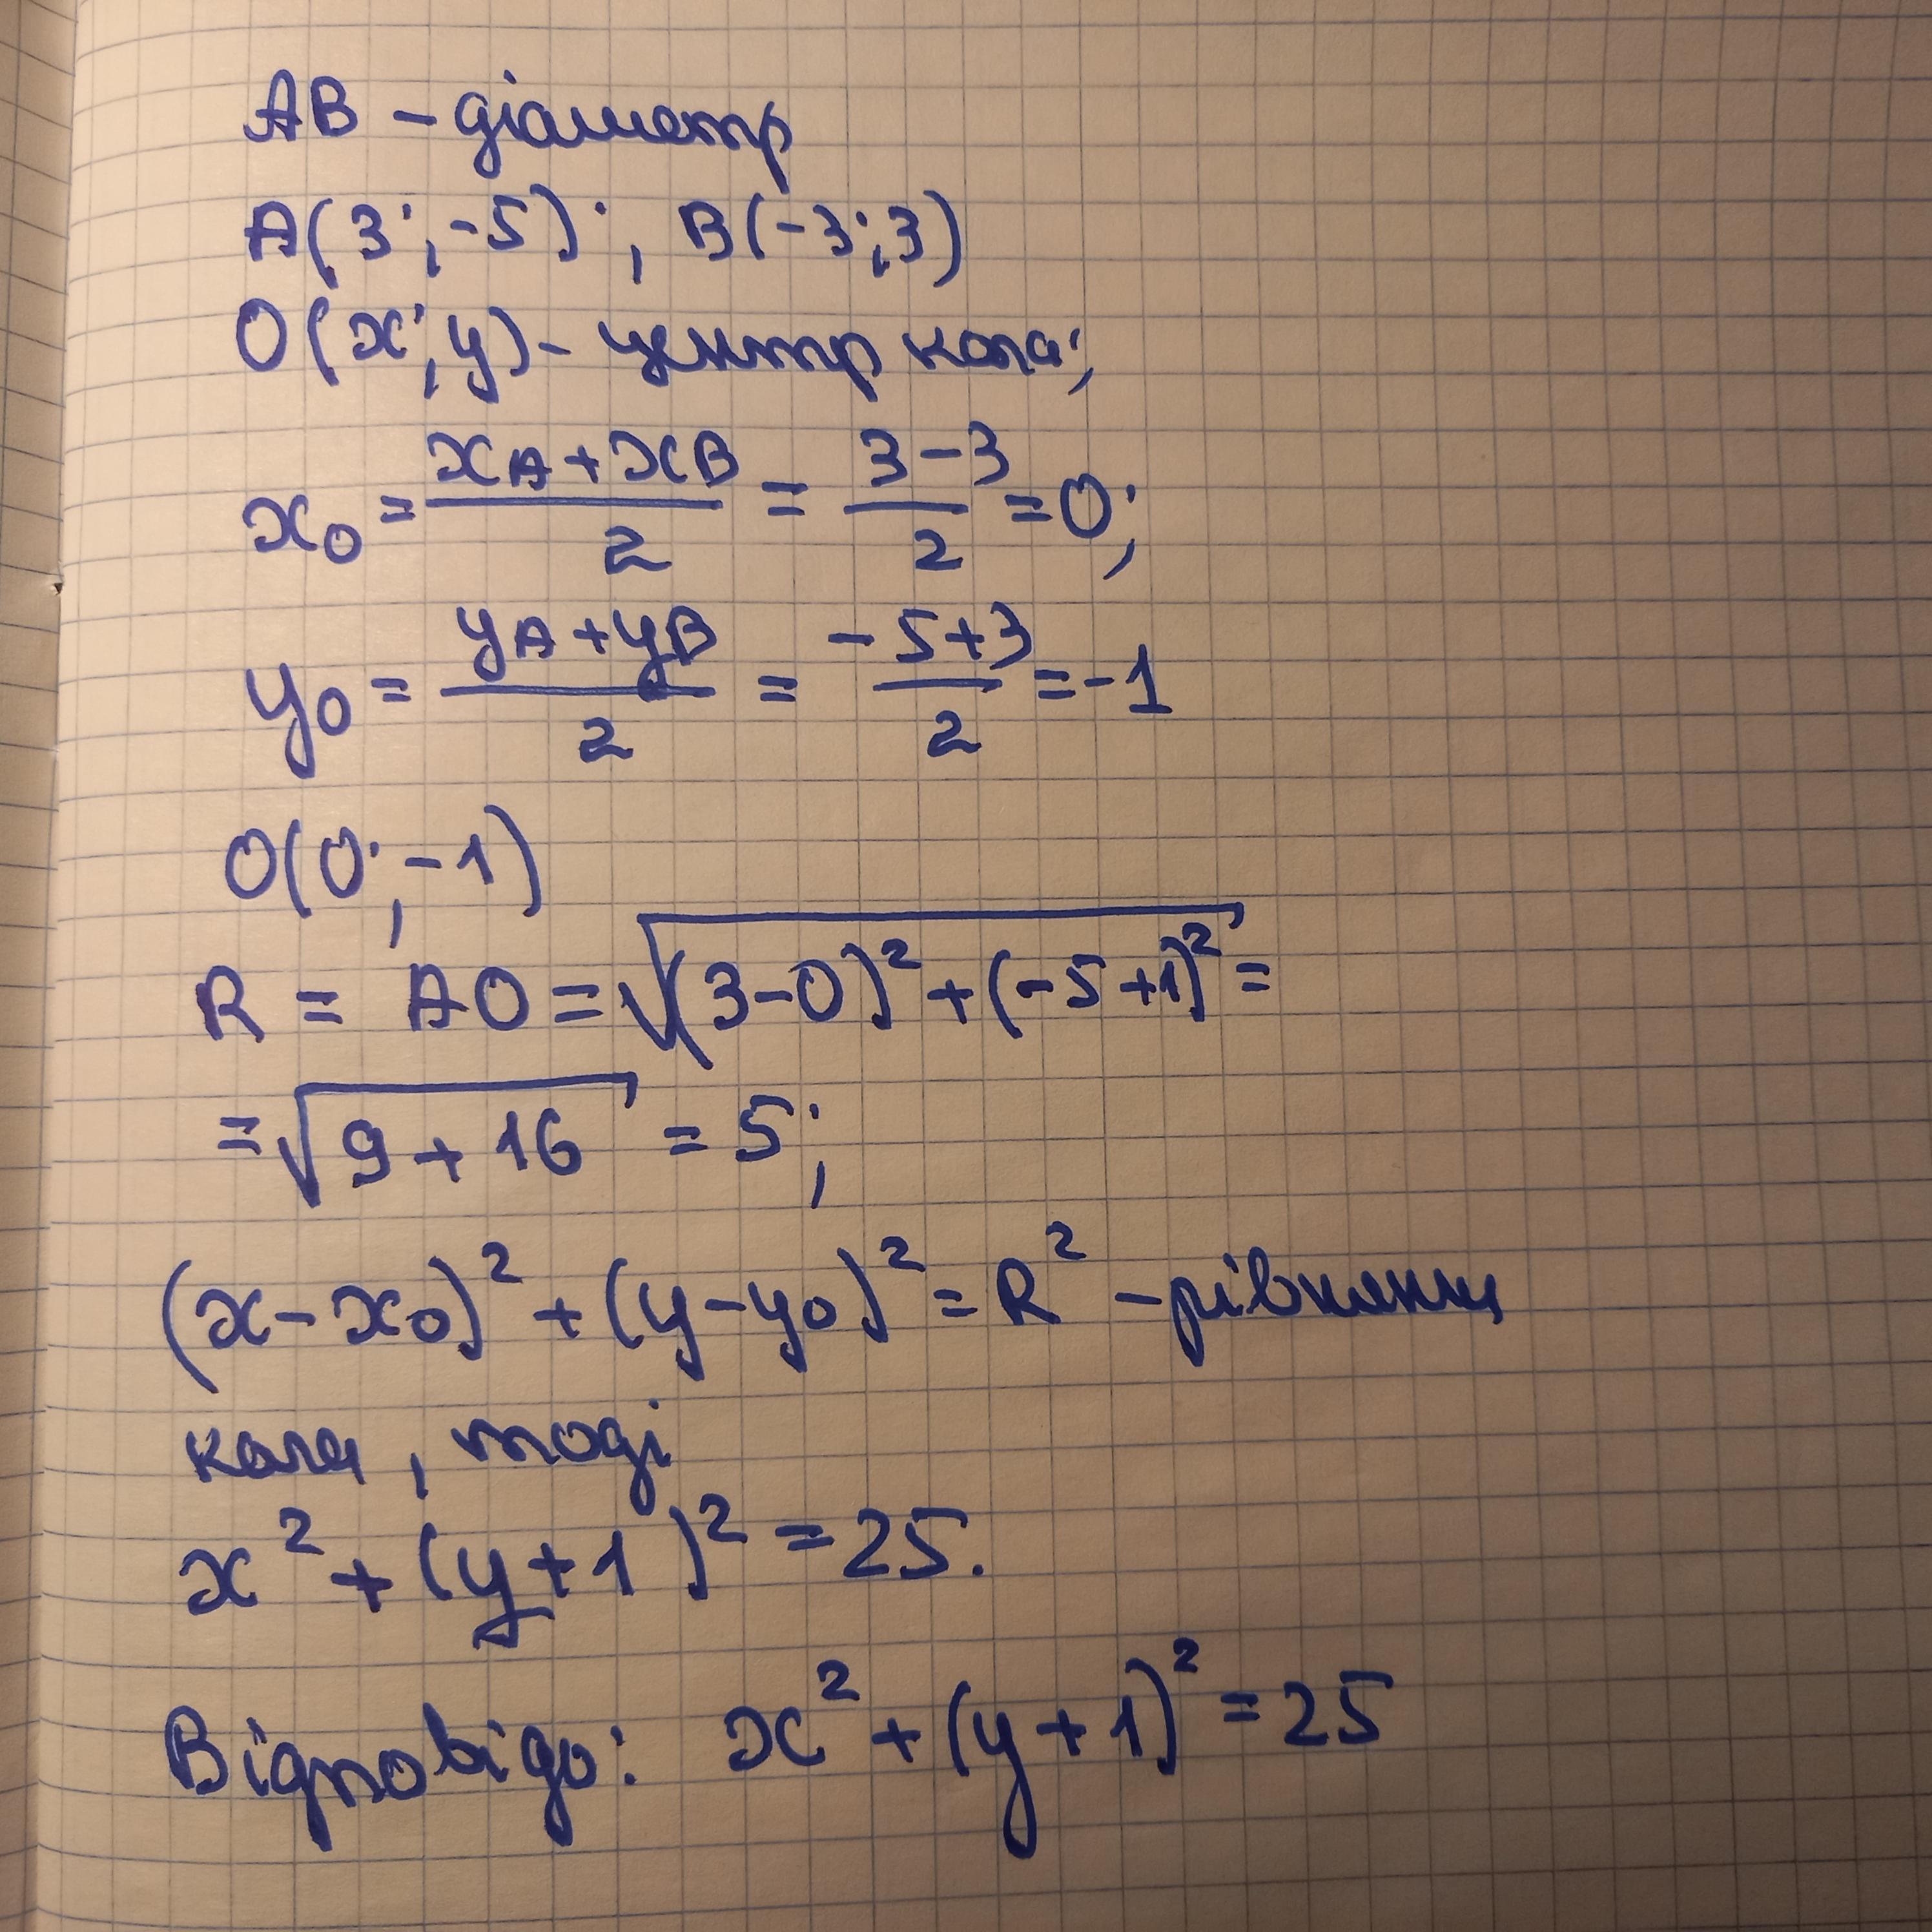 AB - діаметр
A(3;-5); B(-3;3)
O(x;y)- центр кола;
x₀ = (xA+xB)/2 = (3-3)/2 = 0;
y₀ = (yA+yB)/2 = (-5+3)/2 = -1
O(0;-1)
R = AO = √((3-0)² + (-5+1)²) =
= √(9+16) = 5;
(x-x₀)² + (y-y₀)² = R² - рівняння
кола, тоді
x² + (y+1)² = 25.
Відповідь: x² + (y+1)² = 25